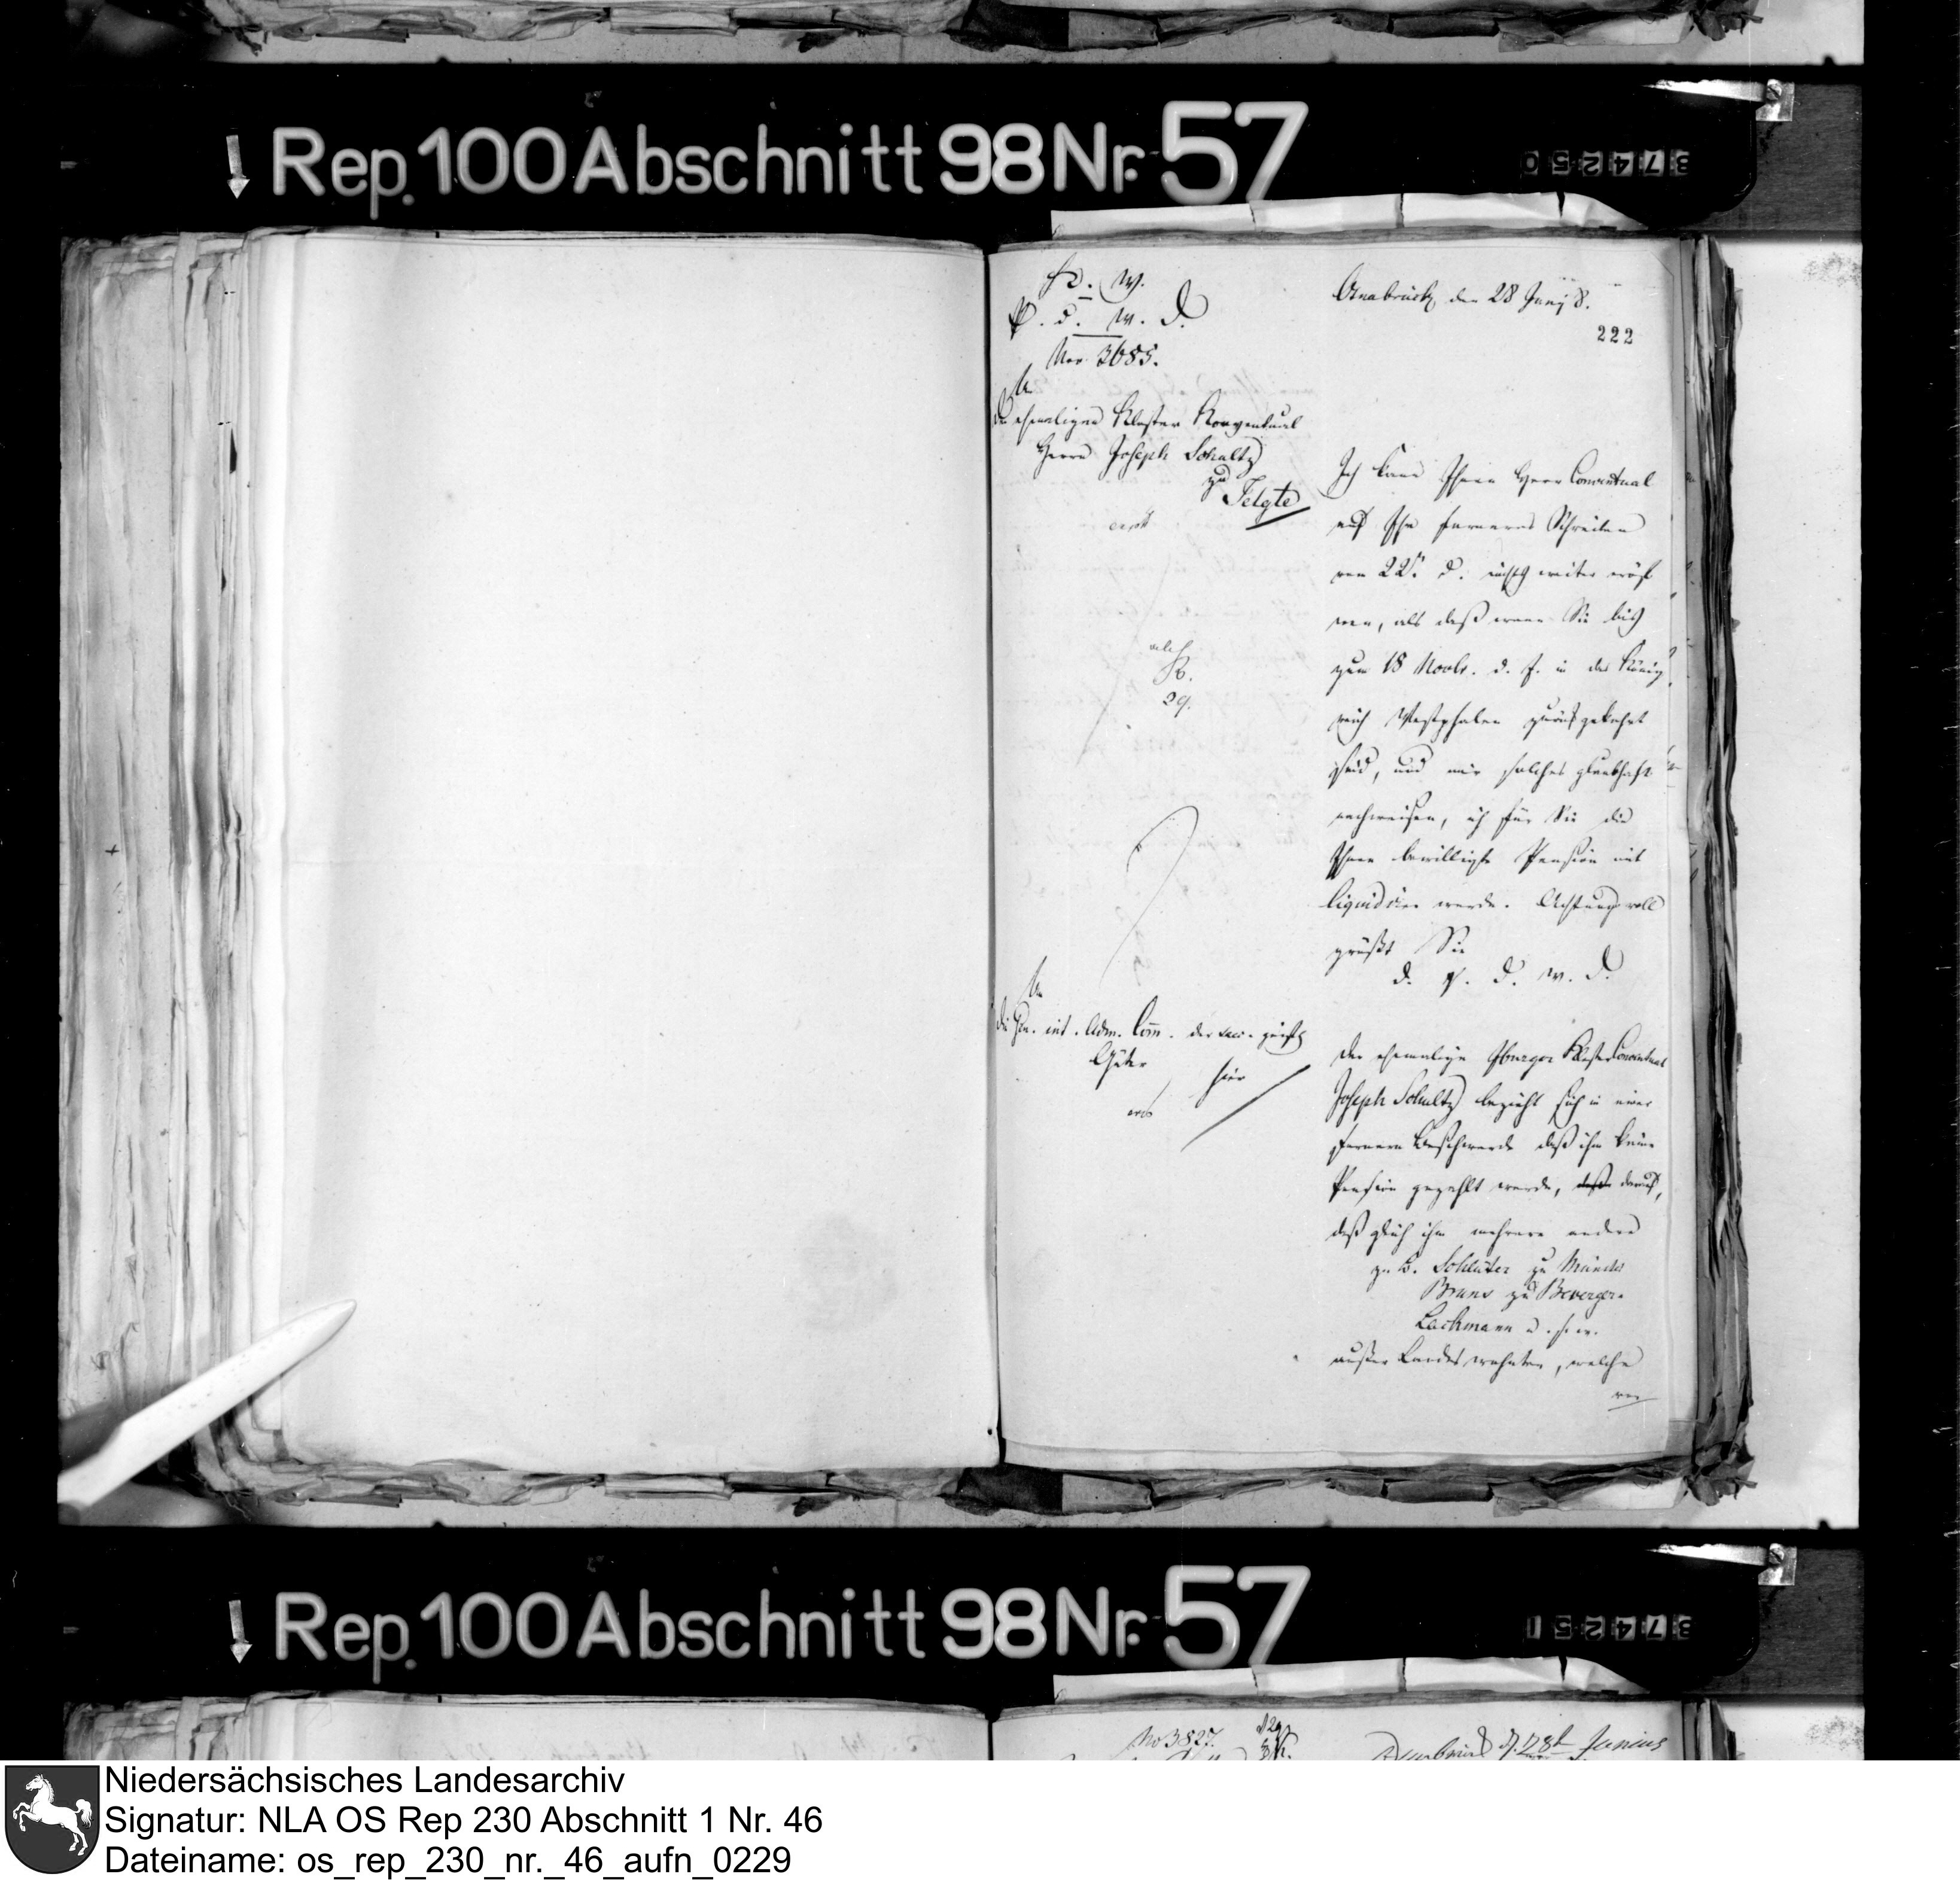 Rep. 100 Abschnitt 98 Nr. 57
374250
K. W.
P. d. W. D.
Nro. 3685.
An
den ehemaligen Kloster Konventual
Herrn Joseph Schultz
zu
Telgte
Osnabrück, den 28 Junj 8.
222
Ich kann Ihnen Herr Conventual
auf Ihr ferneres Schreiben
vom 22. d. nichts weiter eröf
nen, als daß wenn Sie bis
zum 18 Novbr. d. J. in das König
reich Westphalen zurückgekehrt
seid, und mir solches glaubhaft
nachweisen, ich für Sie die
Ihnen bewilligte Pension mit
liquidiren werde. Achtungsvoll
grüßt Sie
d. P. d. W. D.
29.
An
die Gen. int. Adm. Com. der geistl.
Güter
hier
Der ehemalige Iburger Kloster Conventual
Joseph Schultz bezieht sich in einer
fernern Beschwerde daß ihm keine
Pension gezahlt werde, daß darauf,
daß gleich ihm mehrere andere
z. B. Schlüter zu Münster
Bruns zu Bevergern
Lackmann u. s. w.
außer Landes wohnten, welche
Rep. 100 Abschnitt 98 Nr. 57
374251
No 3827.
Osnabrück d. 28t Junius
Niedersächsisches Landesarchiv
Signatur: NLA OS Rep 230 Abschnitt 1 Nr. 46
Dateiname: os_rep_230_nr._46_aufn_0229